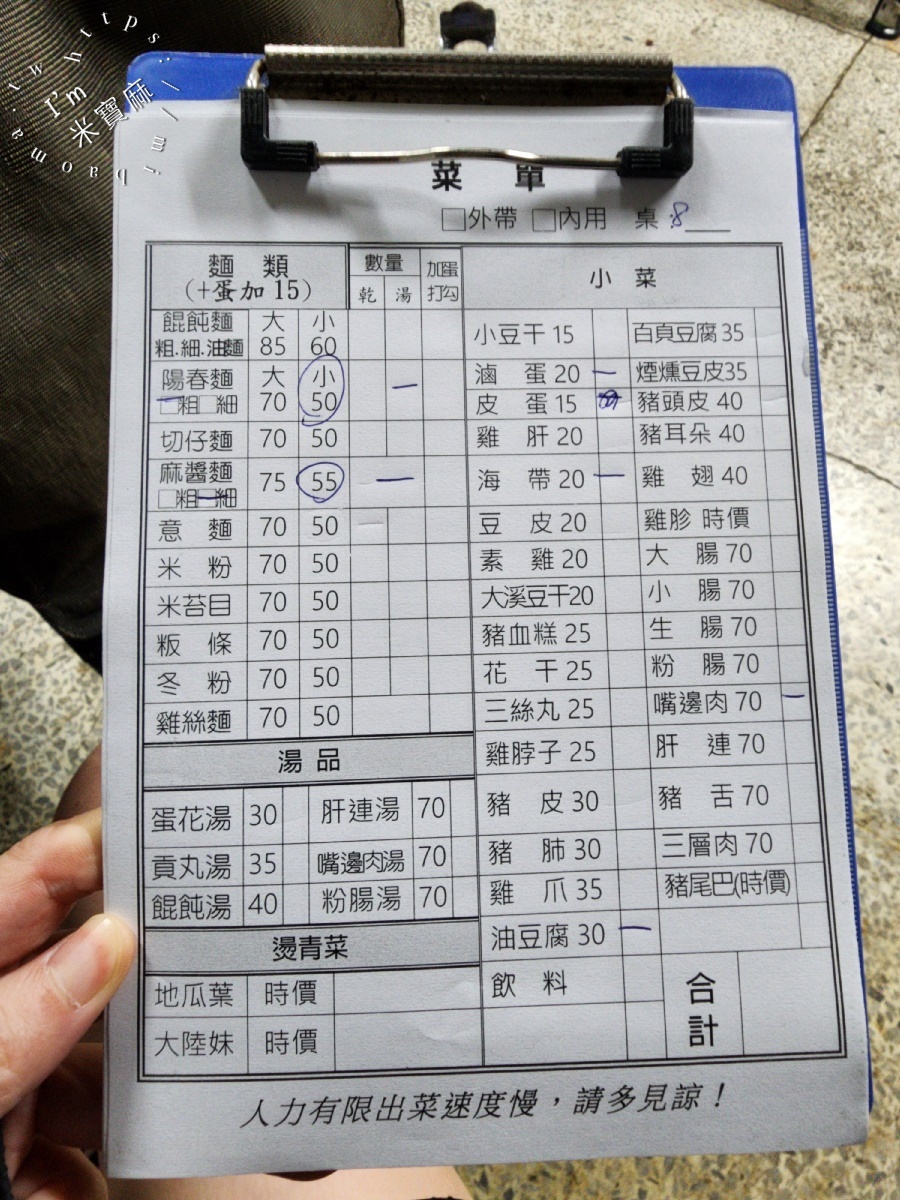 https://mibaoma.tw
I'm
米寶麻
菜 單
□外帶 □內用 桌 8
麵 類
(+蛋加15)
數量
乾 湯
加蛋
打勾
餛飩麵 大 小
粗.細.油麵 85 60
陽春麵 大 小
□粗□細 70 50
切仔麵 70 50
麻醬麵 75 55
□粗□細
意 麵 70 50
米 粉 70 50
米苔目 70 50
粄 條 70 50
冬 粉 70 50
雞絲麵 70 50
湯 品
蛋花湯 30 肝連湯 70
貢丸湯 35 嘴邊肉湯 70
餛飩湯 40 粉腸湯 70
燙青菜
地瓜葉 時價
大陸妹 時價
小 菜
小豆干 15 百頁豆腐 35
滷 蛋 20 煙燻豆皮35
皮 蛋 15 豬頭皮 40
雞 肝 20 豬耳朵 40
海 帶 20 雞 翅 40
豆 皮 20 雞胗 時價
素 雞 20 大 腸 70
大溪豆干20 小 腸 70
豬血糕 25 生 腸 70
花 干 25 粉 腸 70
三絲丸 25 嘴邊肉 70
雞脖子 25 肝 連 70
豬 皮 30 豬 舌 70
豬 肺 30 三層肉 70
雞 爪 35 豬尾巴(時價)
油豆腐 30
飲 料
合計
人力有限出菜速度慢，請多見諒！